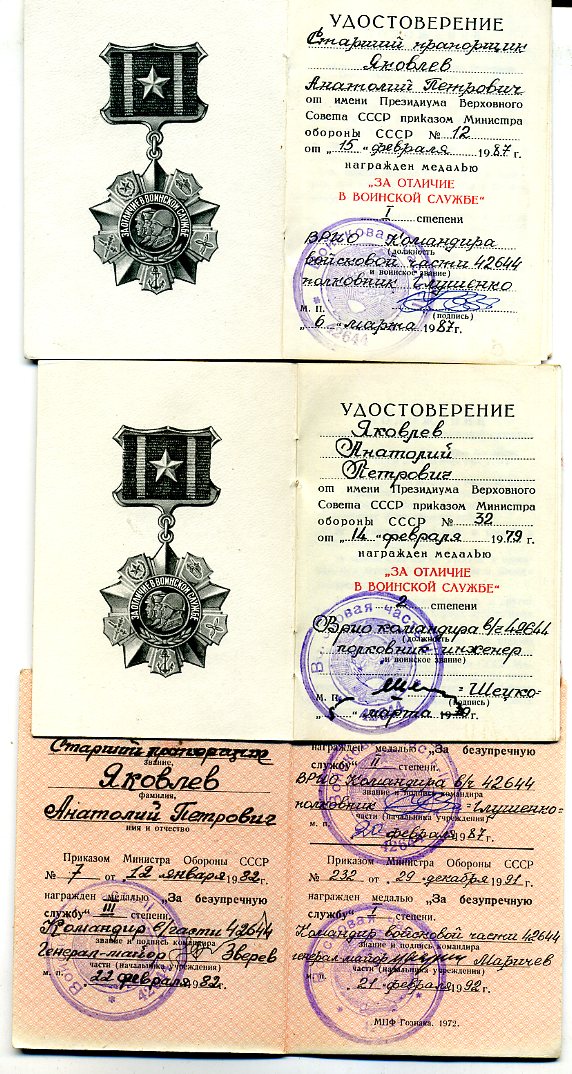 УДОСТОВЕРЕНИЕ
Старший прапорщик
Яковлев
Анатолий Петрович
от имени Президиума Верховного
Совета СССР приказом Министра
обороны СССР № 12
от „15“ февраля 1987 г.
награжден медалью
„ЗА ОТЛИЧИЕ
В ВОИНСКОЙ СЛУЖБЕ“
I степени
ВРИО Командира
(должность
войсковой части 42644
и воинское звание)
полковник Глушенко
М. П.
(подпись)
„6“ марта 1987г.
ЗА ОТЛИЧИЕ В ВОИНСКОЙ СЛУЖБЕ
42644
УДОСТОВЕРЕНИЕ
Яковлев
Анатолий
Петрович
от имени Президиума Верховного
Совета СССР приказом Министра
обороны СССР № 32
от „14“ февраля 1979 г.
награжден медалью
„ЗА ОТЛИЧИЕ
В ВОИНСКОЙ СЛУЖБЕ“
2 степени
Врио командира в/ч 42644
(должность
полковник-инженер
и воинское звание)
М. П.
Шецко
(подпись)
„5“ марта 19
ЗА ОТЛИЧИЕ В ВОИНСКОЙ СЛУЖБЕ
Войсковая часть
42644
Старший прапорщик
звание,
Яковлев
фамилия,
Анатолий Петрович
имя и отчество
Приказом Министра Обороны СССР
№ 7 от 12 января 1982г.
награжден медалью „За безупречную
службу“ III степени.
Командир в/части 42644
звание и подпись командира
Генерал-майор Зверев
части (начальника учреждения)
м. п. 22 февраля 1982.
награжден медалью „За безупречную
службу“ II степени.
ВРИО Командира в/ч 42644
звание и подпись командира
полковник Глушенко
части (начальника учреждения)
м. п. 20 февраля 1987г.
42644
Приказом Министра Обороны СССР
№ 232 от 29 декабря 1991г.
награжден медалью „За безупречную
службу“ I степени.
Командир войсковой части 42644
звание и подпись командира
генерал майор Маричев
части (начальника учреждения)
м. п. 21 февраля 1992г.
МПФ Гознака. 1972.